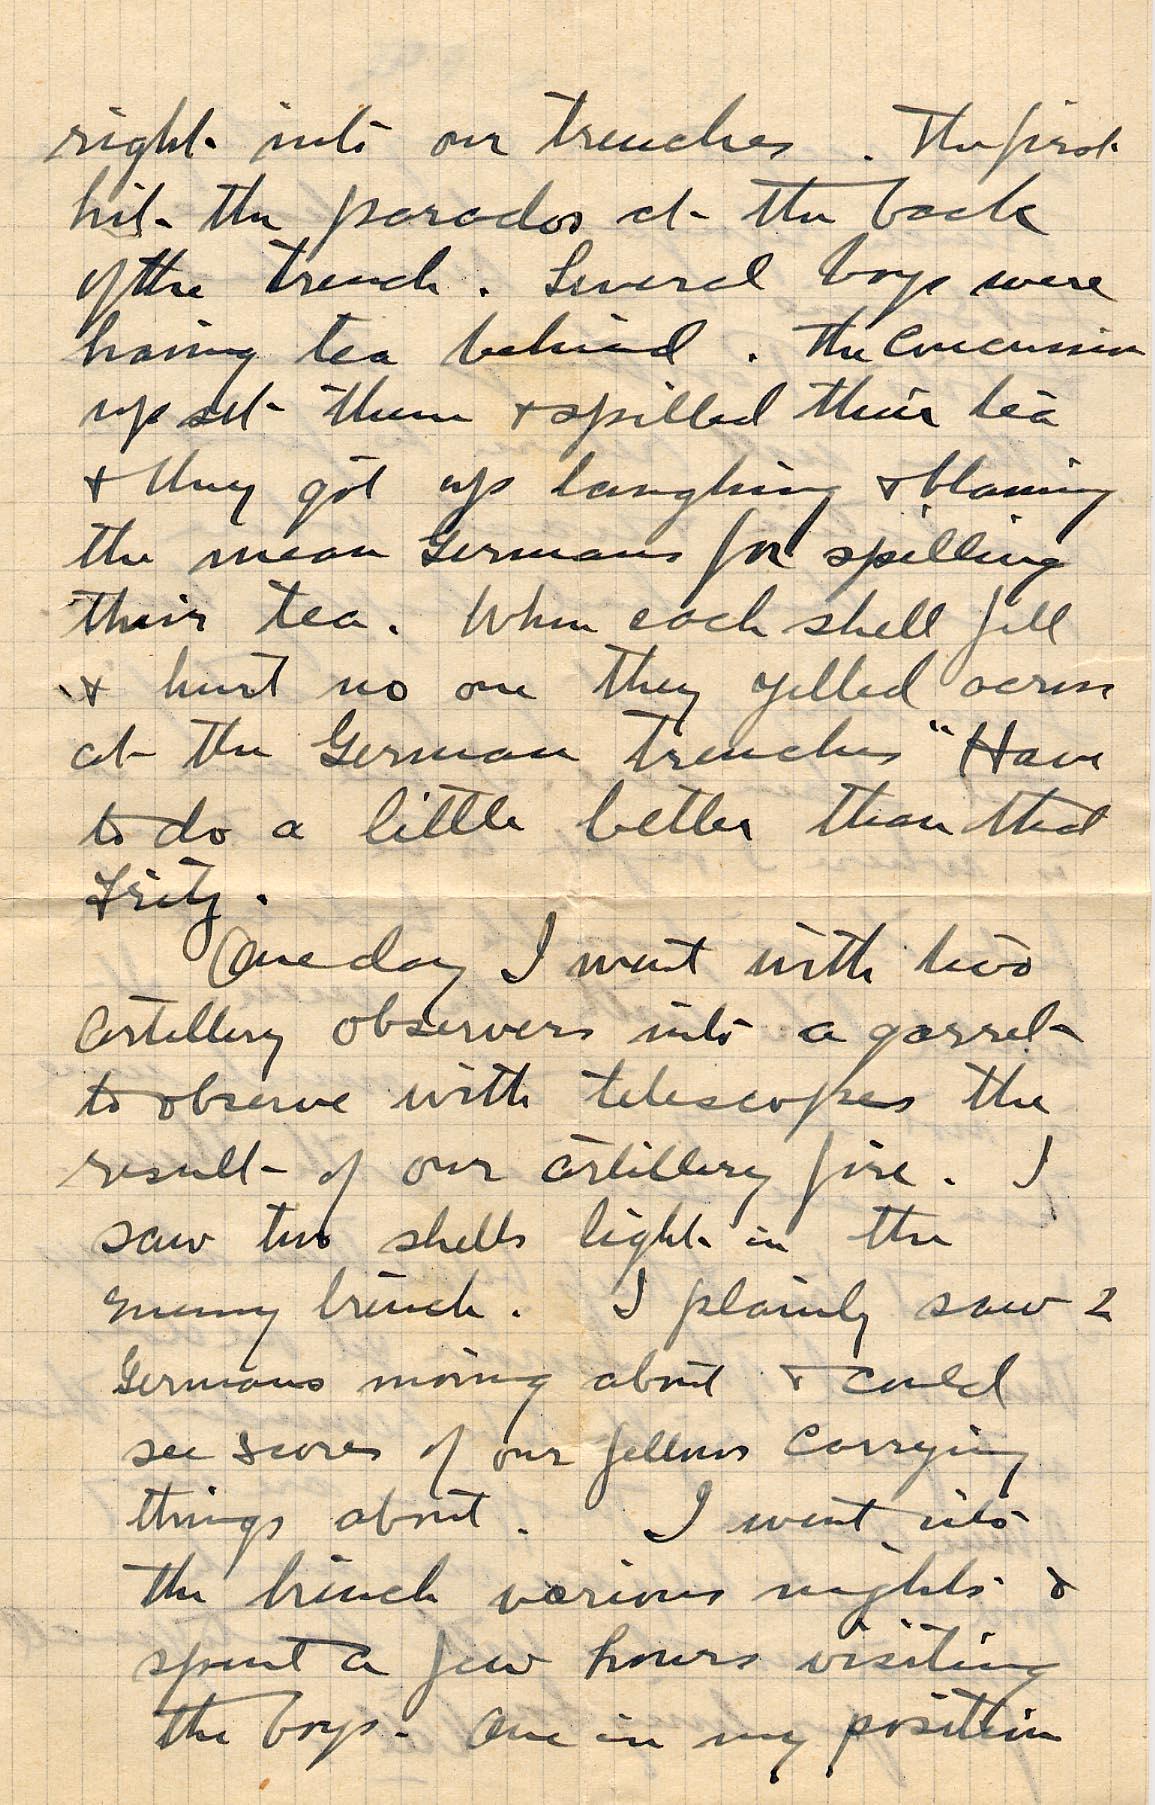 right into our trenches. The first
hit the parados at the back
of the trench. Several boys were
having tea behind. The concussion
upset them & spilled their tea
& they got up laughing & blaming
the mean Germans for spilling
their tea. When each shell fell
& hurt no one they yelled across
at the German trenches "Have
to do a little better than that
Fritz.
One day I went with two
artillery observers into a garret
to observe with telescopes the
result of our artillery fire. I
saw two shells light in the
enemy trench. I plainly saw 2
Germans moving about & could
see scores of our fellows carrying
things about. I went into
the trench various nights &
spent a few hours visiting
the boys. One in my position